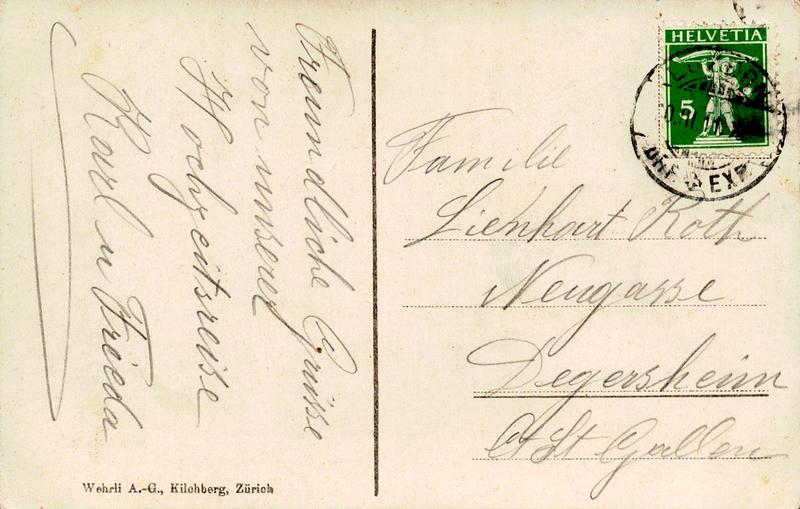 Freundliche Grüsse
von unserer
Hochzeitsreise
Karl u Frieda
HELVETIA
5
Familie
Lienhart Roth
Neugasse
Degersheim
Ct St Gallen
Wehrli A.-G., Kilchberg, Zürich